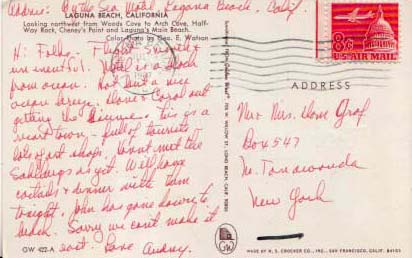 Address: By the Sea Motel Laguna Beach, Calif.
LAGUNA BEACH, CALIFORNIA
Looking northwest from Woods Cove to Arch Cove, Half-
Way Rock, Cheney's Point and Laguna's Main Beach.
Color Photo by Geo. E. Watson
Hi Folks - Flight smooth &
uneventful. Motel is a block
from ocean. Hot but a nice
ocean breeze. and out
getting the . This is a
town - full of tourists
lots of art shops. Haven't met the
as yet. We'll have
coctails & dinner with them
tonight. John has gone down to
beach. Sorry we can't make it
east. Love Audrey.
GW 422-A
GW
8¢
U.S. AIR MAIL
ADDRESS
Mr & Mrs. Graf
Box 547
N. Tonawanda
New York
MADE BY H. S. CROCKER CO., INC., SAN FRANCISCO, CALIF. 94103